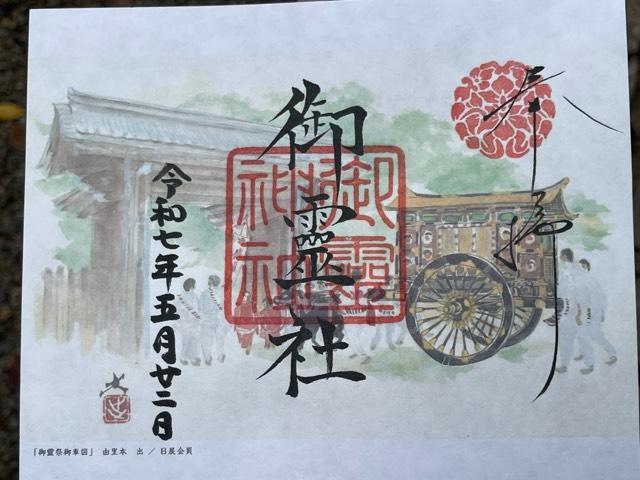 奉拝
御靈社
御靈神社
令和七年五月廿二日
「御霊祭御車図」 由里本 出 / 日展会員